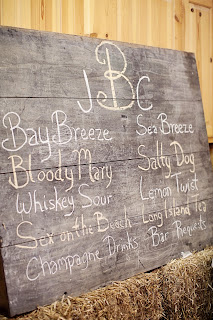 J B C
Bay Breeze Sea Breeze
Bloody Mary Salty Dog
Whiskey Sour Lemon Twist
Sex on the Beach Long Island Tea
Champagne Drinks - Bar Requests